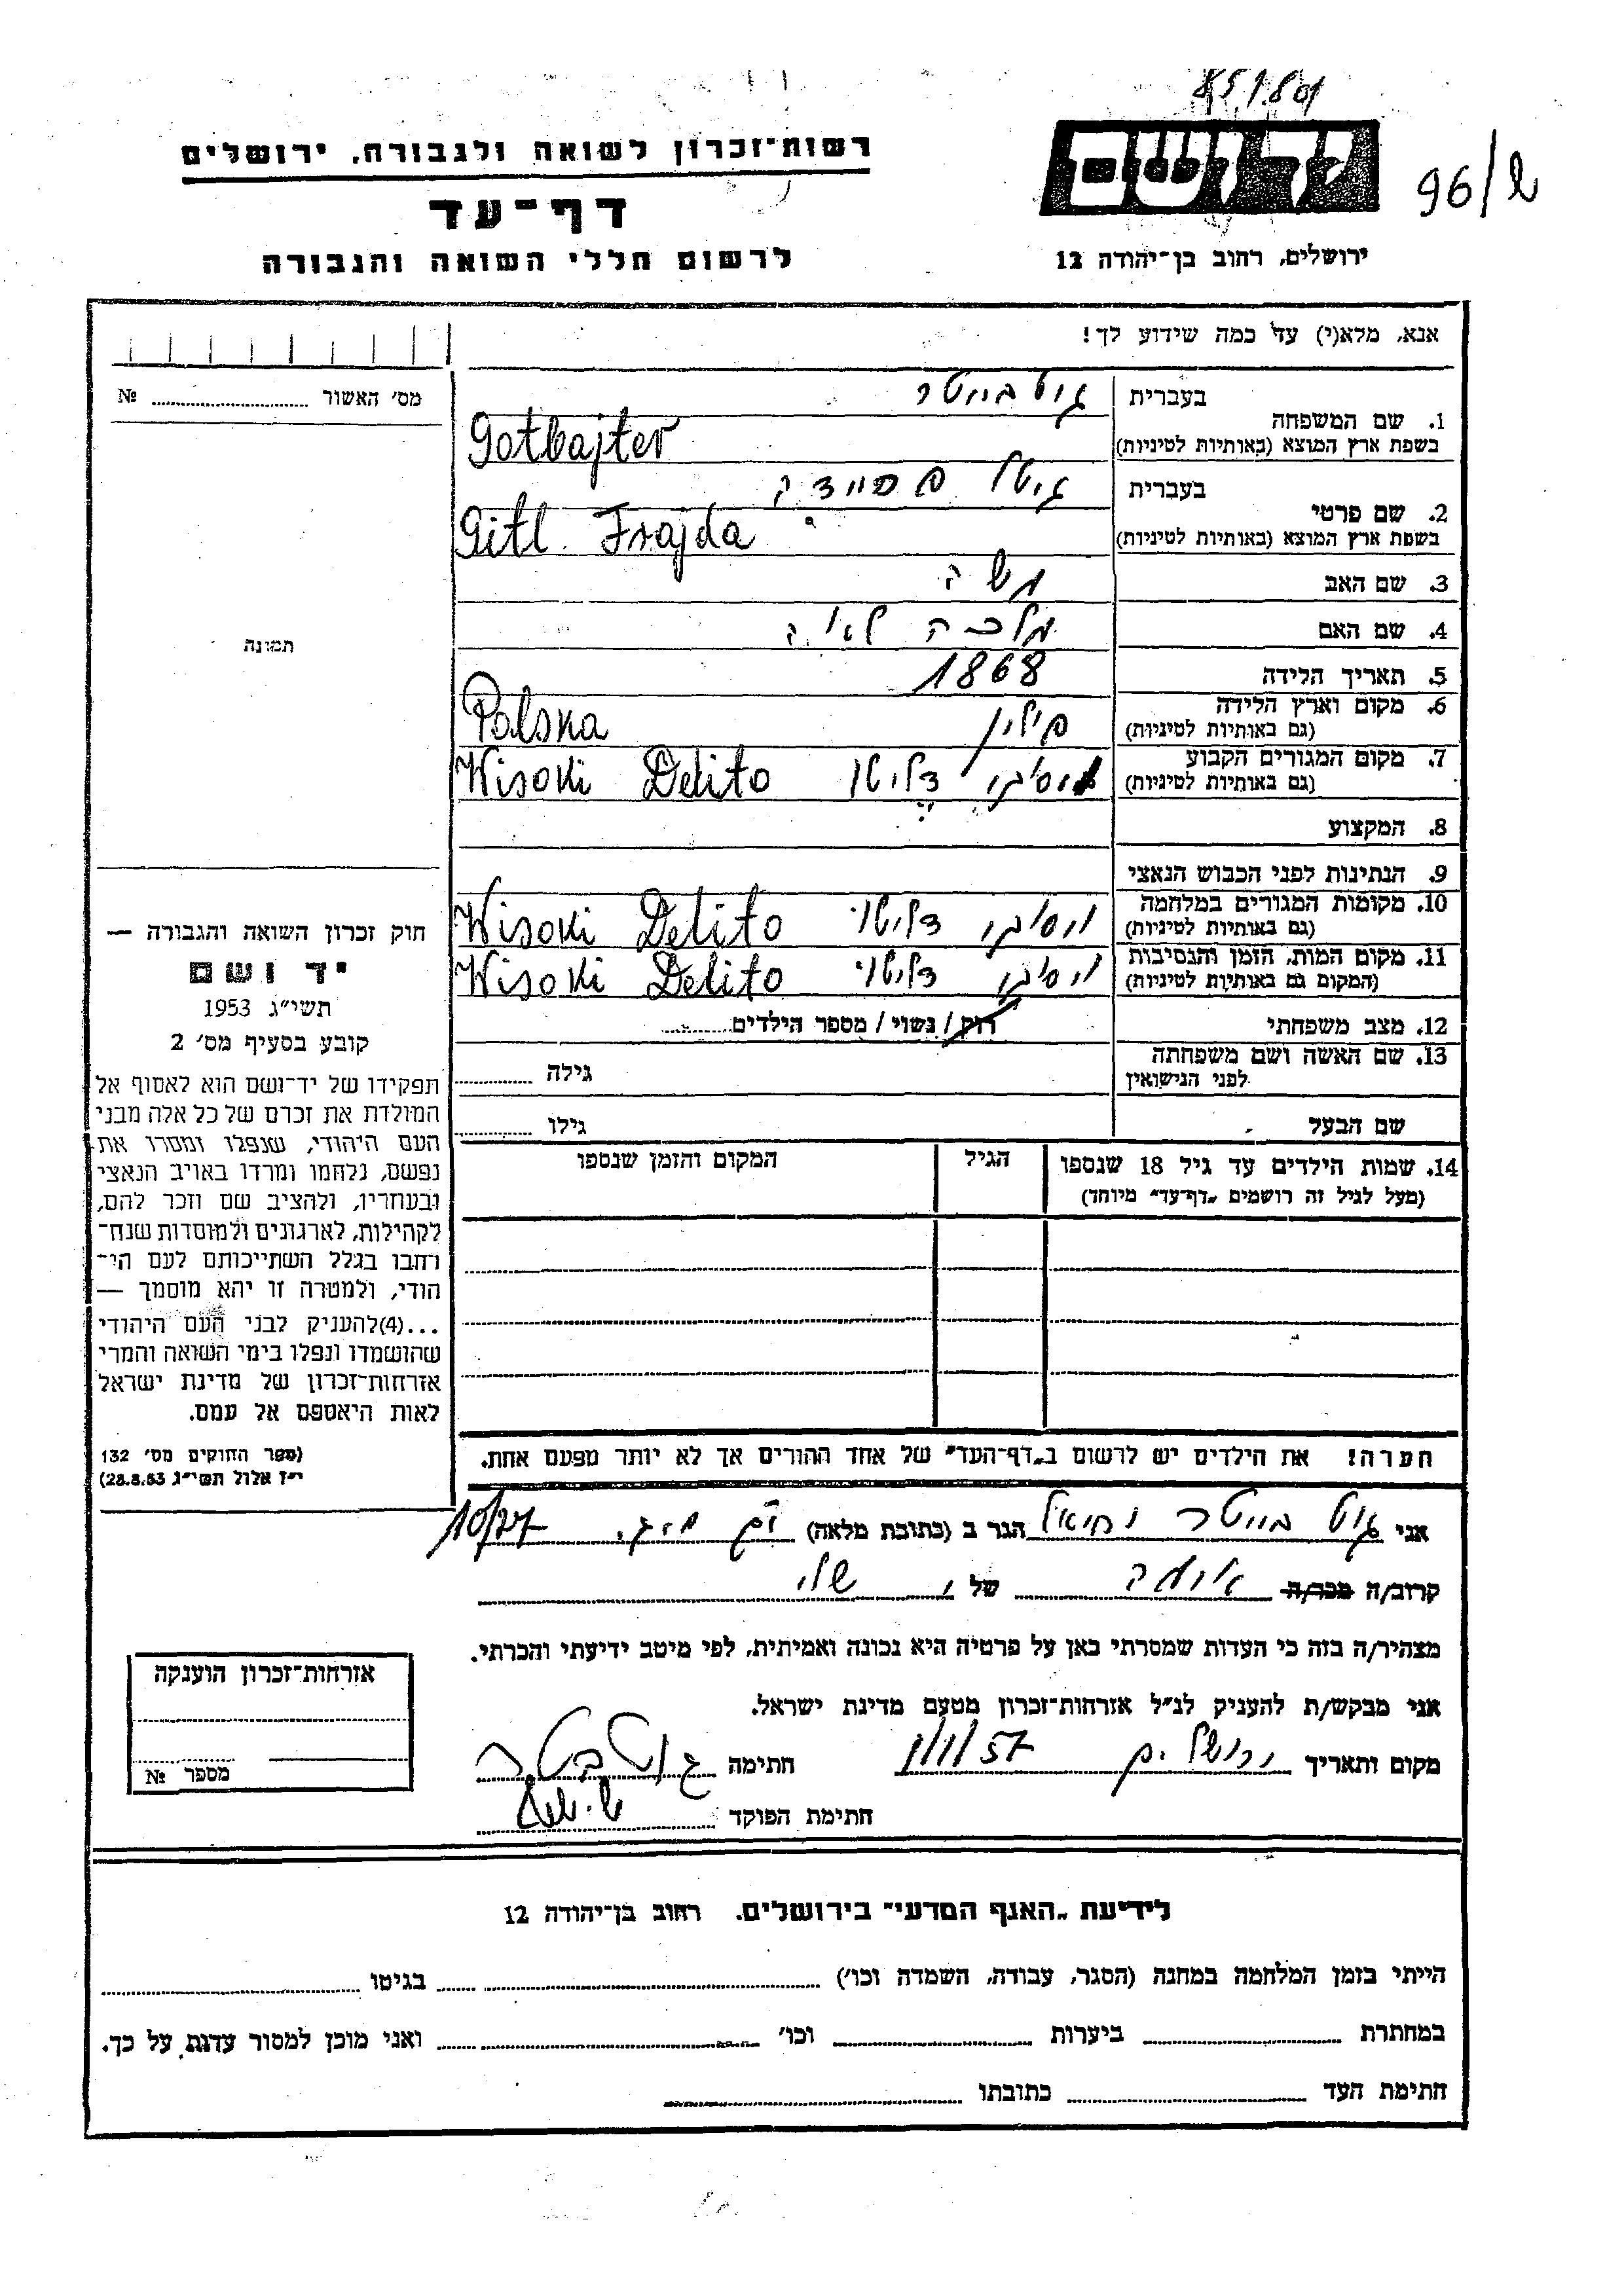 85/801
96/ש
רשות־זכרון לשואה ולגבורה, ירושלים
יד ושם
דף־עד
לרשום חללי השואה והגבורה
ירושלים, רחוב בן־יהודה 12
אנא, מלא(י) עד כמה שידוע לך!
מס׳ האשור № 
1. שם המשפחה
בעברית גוטבייטר
בשפת ארץ המוצא (באותיות לטיניות) Gotbajter
2. שם פרטי
בעברית גיטל פריידה
בשפת ארץ המוצא (באותיות לטיניות) Gitl Frajda
3. שם האב משה
4. שם האם מלכה לאה
5. תאריך הלידה 1868
6. מקום וארץ הלידה
(גם באותיות לטיניות) פולין Polska
7. מקום המגורים הקבוע
(גם באותיות לטיניות) וויסוקי דליטו Wisoki Delito
8. המקצוע
9. הנתינות לפני הכבוש הנאצי
10. מקומות המגורים במלחמה
(גם באותיות לטיניות) ויסוקי דליטו Wisoki Delito
11. מקום המות, הזמן והנסיבות
(המקום גם באותיות לטיניות) ויסוקי דליטו Wisoki Delito
12. מצב משפחתי רוק / נשוי / מספר הילדים
13. שם האשה ושם משפחתה
לפני הנישואין גילה
שם הבעל גילו
14. שמות הילדים עד גיל 18 שנספו הגיל המקום והזמן שנספו
(מעל לגיל זה רושמים „דף־עד״ מיוחד)
תמונה
חוק זכרון השואה והגבורה —
יד ושם
תשי״ג 1953
קובע בסעיף מס׳ 2
תפקידו של יד־ושם הוא לאסוף אל
המולדת את זכרם של כל אלה מבני
העם היהודי, שנפלו ומסרו את
נפשם, נלחמו ומרדו באויב הנאצי
ובעוזריו, ולהציב שם וזכר להם,
לקהילות, לארגונים ולמוסדות שנח־
רבו בגלל השתייכותם לעם הי־
הודי, ולמטרה זו יהא מוסמך —
...(4) להעניק לבני העם היהודי
שהושמדו ונפלו בימי השואה והמרי
אזרחות־זכרון של מדינת ישראל
לאות היאספם אל עמם.
(ספר החוקים מס׳ 132
י״ז אלול תשי״ג 28.8.53)
הערה! את הילדים יש לרשום ב„דף־העד״ של אחד ההורים אך לא יותר מפעם אחת.
אני גוט בייטר הגר ב (כתובת מלאה) 10/27
קרוב/ה מכר/ה של שלי
מצהיר/ה בזה כי העדות שמסרתי כאן על פרטיה היא נכונה ואמיתית, לפי מיטב ידיעתי והכרתי.
אני מבקש/ת להעניק לנ״ל אזרחות־זכרון מטעם מדינת ישראל.
מקום ותאריך ירושלים 1/11/57 חתימה גוטבייטר
חתימת הפוקד
אזרחות־זכרון הוענקה
מספר №
לידיעת „האגף המדעי״ בירושלים, רחוב בן־יהודה 12
הייתי בזמן המלחמה במחנה (הסגר, עבודה, השמדה וכו׳) בגיטו
במחתרת ביערות וכו׳ ואני מוכן למסור עדות על כך.
חתימת העד כתובתו